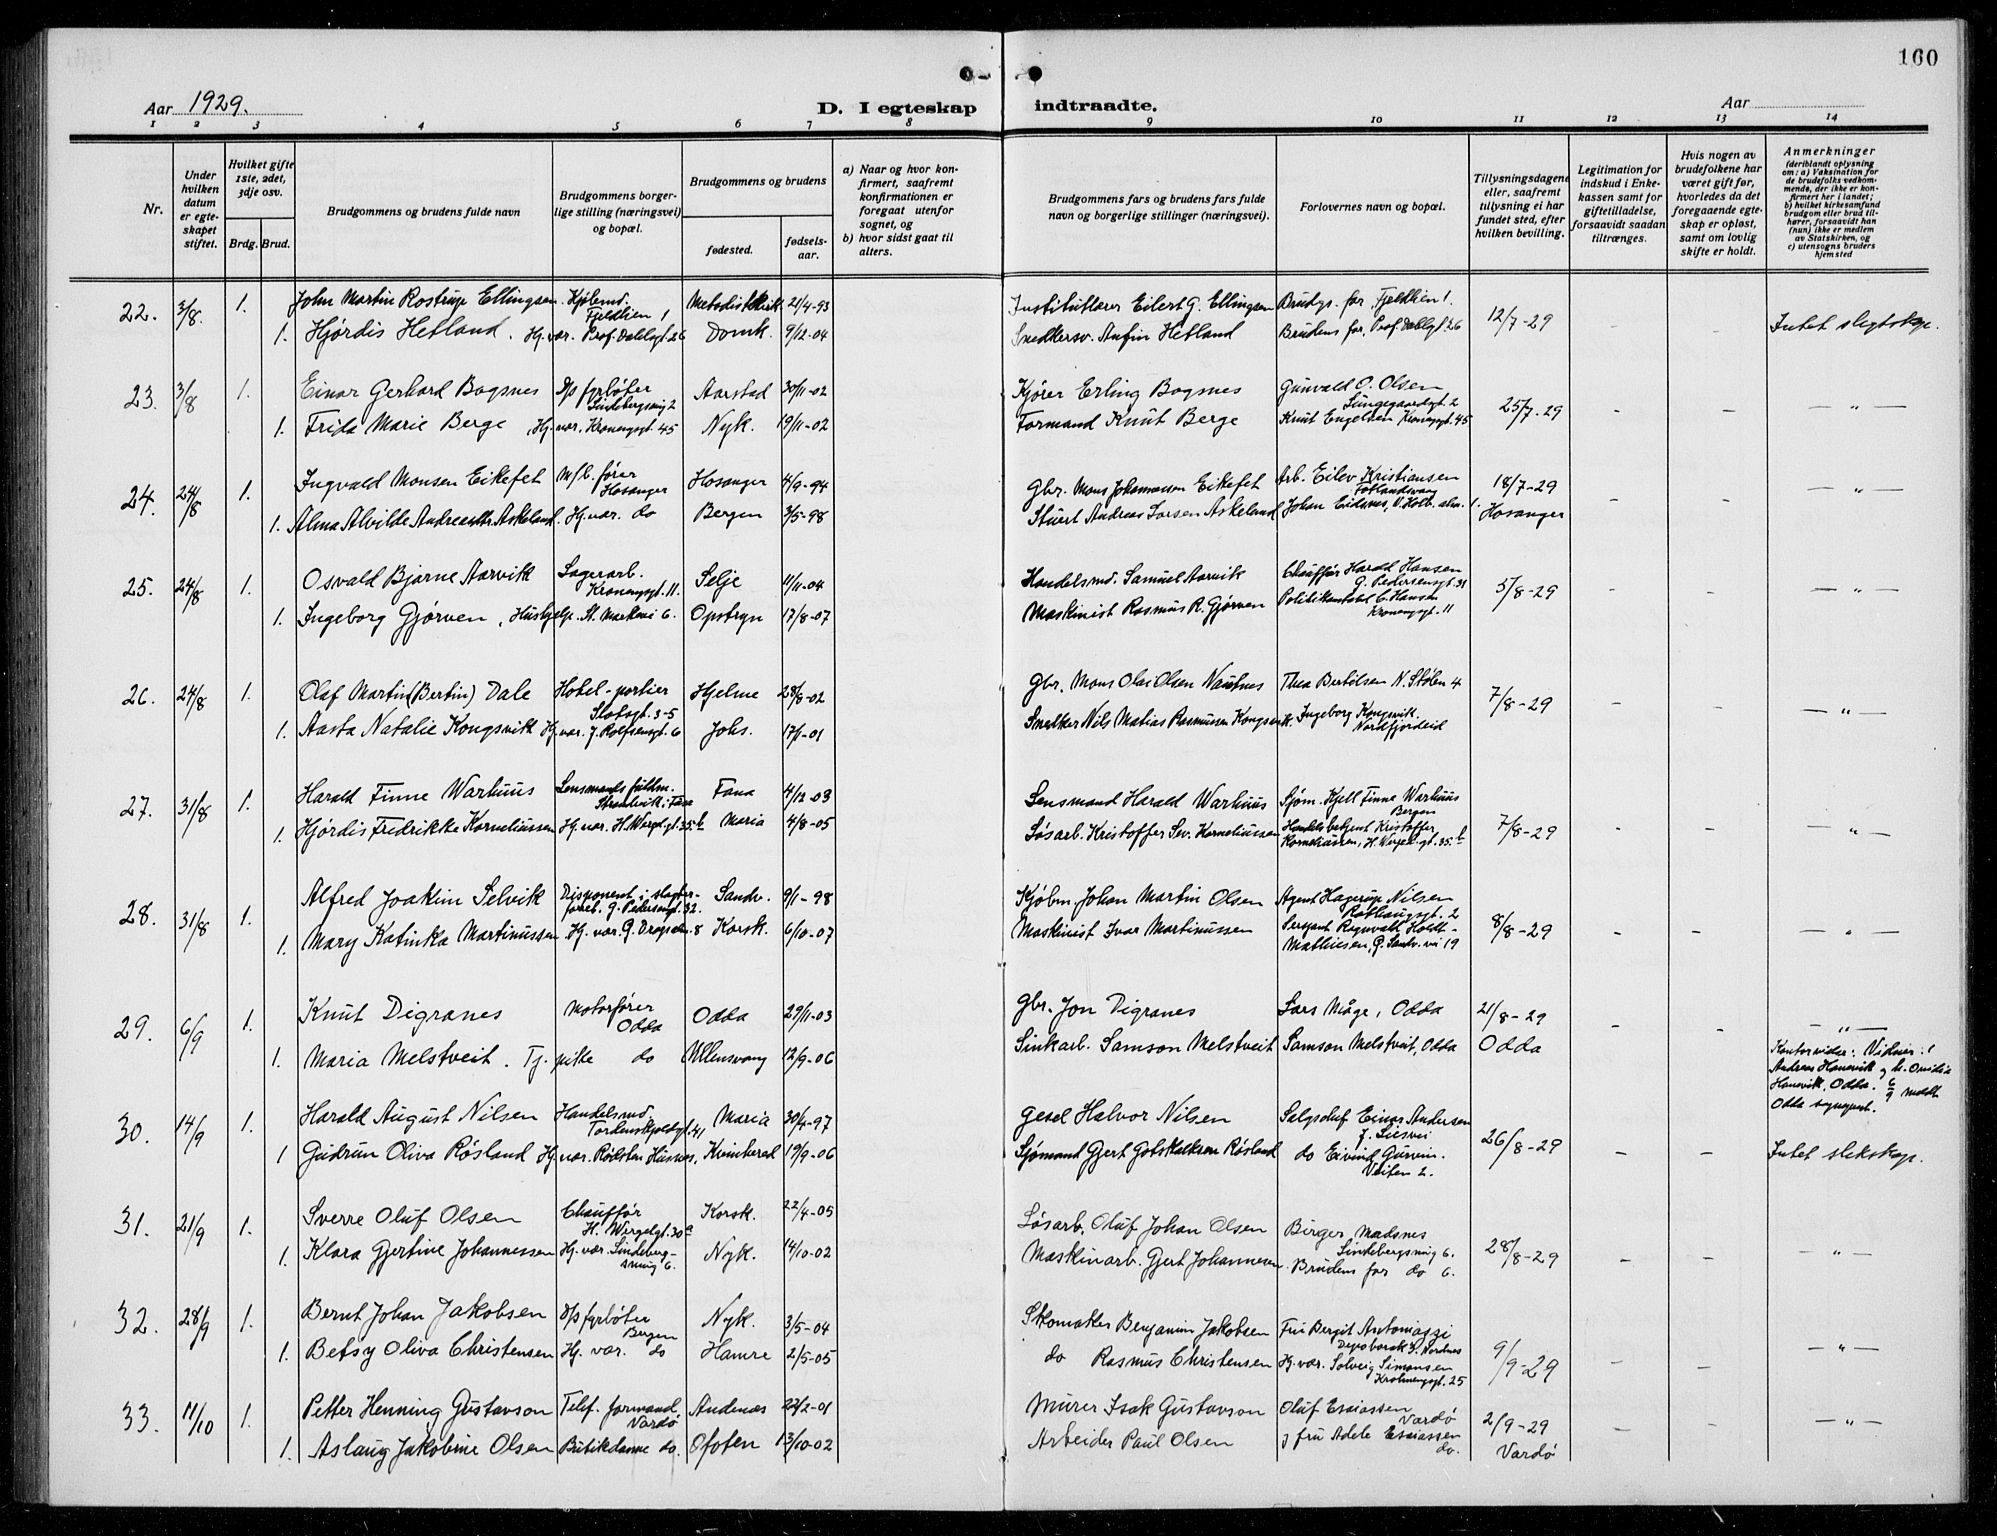 160
Aar 1929.
D. I egteskap indtraadte.
Aar
1 2 3 4 5 6 7 8 9 10 11 12 13 14
Nr.
Under hvilken datum er egteskapet stiftet.
Hvilket gifte 1ste, 2det, 3dje osv.
Brdg. Brud.
Brudgommens og brudens fulde navn
Brudgommens borgerlige stilling (næringsvei) og bopæl.
Brudgommens og brudens
fødested.
fødselsaar.
a) Naar og hvor konfirmert, saafremt konfirmationen er foregaat utenfor sognet, og
b) hvor sidst gaat til alters.
Brudgommens fars og brudens fars fulde navn og borgerlige stillinger (næringsvei).
Forlovernes navn og bopæl.
Tillysningsdagene eller, saafremt tillysning ei har fundet sted, efter hvilken bevilling.
Legitimation for indskud i Enkekassen samt for giftetilladelse, forsaavidt saadan tiltrænges.
Hvis nogen av brudefolkene har været gift før, hvorledes da det foregaaende egteskap er opløst, samt om lovlig skifte er holdt.
Anmerkninger
(deriblandt oplysning om: a) Vaksination for de brudefolks vedkommende, der ikke er konfirmert her i landet; b) hvilket kirkesamfund brudgom eller brud tilhører, forsaavidt han (hun) ikke er medlem av Statskirken, og c) utensogns bruders hjemsted
22. 3/8. 1. John Martin Rostrup Ellingsen. Kjøbmd. Fjeldlien 1 Metodistkirk. 21/4-93 Institutlærer Eilert G. Ellingsen Brudgs. far, Fjeldlien 1. 12/7-29 - - Intet slegtskap.
1. Hjørdis Hetland. Hj. vær. Prof. Dahlsgt. 26 Domk. 9/12-04 Snedkersv. Anfin Hetland Brudens far, Prof. Dahlgt. 26
23. 3/8 1. Einar Gerhard Bogsnes D/s fyrbøter Lindebergsmug 2 Aarstad 30/11-02 Kjører Erling Bogsnes Gunvald O. Olsen Lungegaardsgt. 2 25/7-29 - - — " —
1. Frida Marie Berge, Hj. vær. Kroneng̱gt. 45 Nyk. 19/11-02 Formand Knut Berge Knut Engelsen Kronengsgt. 45
24. 24/8 1. Ingvald Monsen Eikefet M/b. fører Hosanger Hosanger 4/9-94 Gbr. Mons Johannessen Eikefet Arb. Eilev Kristiansen Fotlandsvaag 18/7-29 - - — " —
1. Alma Alvilde Andreasdtr. Askeland. Hj. vær. do Bergen 3/5-98 Stuert Andreas Larsen Askeland Johan Eidsnes, V. Holb. alm. 1. Hosanger
25. 24/8 1. Osvald Bjarne Aarvik Lagerarb. Kronengsgt. 11. Selje 11/11-04 Handelsmd. Samuel Aarvik Chauffør Harald Hansen G. Pedersensgt. 31 5/8-29 - - — " —
1. Ingeborg Gjørven, Hushjelp. St. Markevei 6. Opstryn 17/8-07 Maskinist Rasmus R. Gjørven Politikonstabel C. Hansen Kronengsgt. 11
26. 24/8 1. Olaf Martin (Bertin) Dale Hotel-portier Slotsgt. 3-5 Hjelme 28/8-02 Gbr. Mons Olai Olsen Nautnes Thea Bertelsen N. Stølen 4 7/8-29 - - — " —
1. Aasta Natalie Kongsvik Hj. vær. J. Rolfsensgt. 6 Johs. 17/1-01 Snedker Nils Matias Rasmussen Kongsvik. Ingeborg Kongsvik. Nordfjordeid
27. 31/8 1. Harald Finne Warhuus Lensmands fuldm. Straalvik i Fana Fana 4/12-03 Lensmand Harald Warhuus Sjøm. Kjell Finne Warhuus Bergen 7/8-29 - - — " —
1. Hjørdis Fredrikke Korneliussen Hj. vær. H. Wergelgt. 35 b Maria 4/8-05 Løsarb. Kristoffer Sev. Korneliussen Handelsbetjent Kristoffer Korneliussen, H. Wergel. gt. 35. b
28. 31/8 1. Alfred Joakim Selvik Disponent i slagterforr. G. Pedersengt. 32. Sandv. 9/1-98 Kjøbm. Johan Martin Olsen Agent Hagerup Nilsen Rothaugsgt. 2 8/8-29 - - — " —
1. Mary Katinka Martinussen Hj. vær. G. Dragealm. 8 Korsk. 6/10-07 Maskinist Ivar Martinussen Sersjant Rognvald Holdt-Mathiesen, G. Sandv. vei 19
29. 6/9 1. Knut Digranes Motorfører Odda Odda 29/11-03 Gbr. Jon Digranes Lars Måge, Odda 21/8-29 - - — " —
1. Maria Melstveit. Tj. pike do Ullensvang 12/9-06 Sinkarb. Samson Melstveit Samson Melstveit, Odda Odda Kontorvidier: Vidner: Andreas Hanevik og M. Ovidia Hanevik, Odda. 6/9 meldt Odda sogneprest.
30. 14/9 1. Harald August Nilsen Handelsmd. Tordenskjoldgt. 41 Maria 30/4-97 Gesel Halvor Nilsen Salgschef Einar Andersen J. Liesvei 26/8-29 - - Intet slekskap.
1 Gudrun Oliva Røsland Hj. vær. Rødsten Husnes, Kvinherad 19/9-06 Sjømand Gjert Gotskalksen Røsland do Eivind Gurvin. Veiten 2.
31. 21/9 1. Sverre Oluf Olsen Chauffør H. Wergelgt. 30 a Korsk. 22/4-05 Løsarb. Oluf Johan Olsen Birger Madsnes Lindebergsmug 6. 28/8-29 - - — " —
1. Klara Gjertine Johannessen Hj. vær. Lindebergsmug 6. Nyk. 14/10-02 Maskinarb. Gjert Johannesen. Brudens far do 6.
32. 28/9 1. Bernt Johan Jakobsen D/s fyrbøter Bergen Nyk. 3/5-04 Skomaker Benjamin Jakobsen Fru Bergit Antoniazzi Depobarak 3. Nordnes 9/9-29 - - — " —
1. Betsy Oliva Christensen Hj. vær. do Hamre 2/5-05 do Rasmus Christensen Hj. vær. Solveig Simonsen Krohnengsgt. 25
33. 11/10 1. Petter Henning Gustavson Telef. formand Vardø Andenæs 22/2-01 Murer Isak Gustavson Oluf Esaiassen Vardø 2/9-29 - - — " —
1. Aslaug Jakobine Olsen Butikdame do. Ofoten 13/10-02 Arbeider Paul Olsen og fru Adele Esaiassen do. Vardø